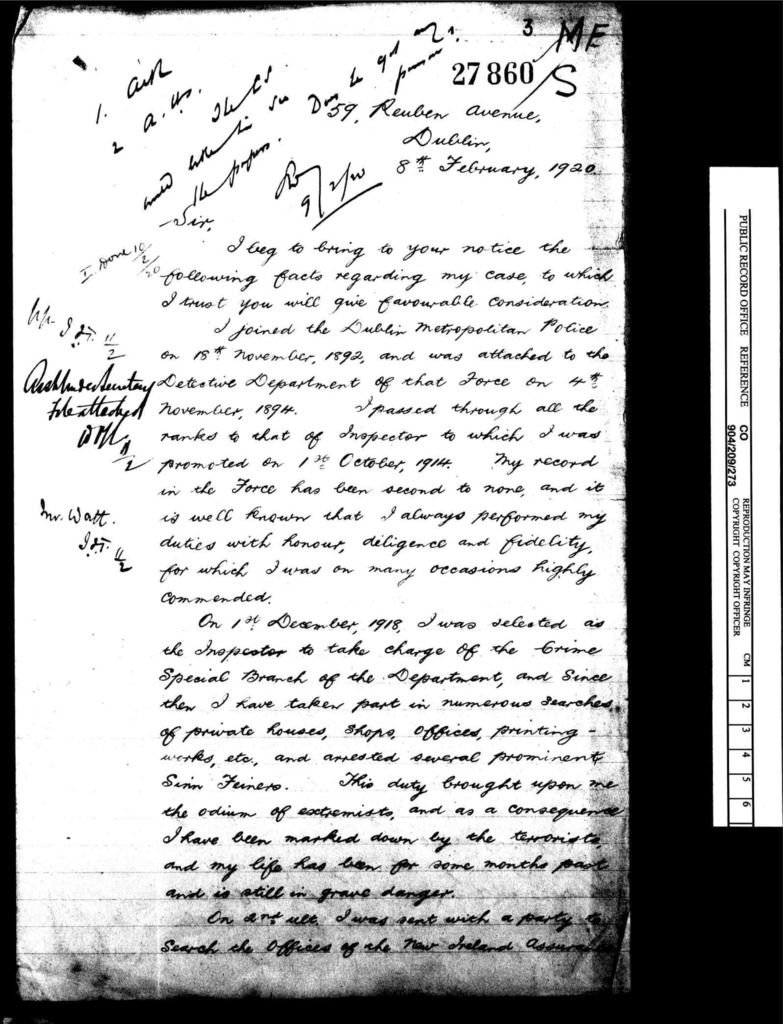 3
ME
27860/S
1. Ask
2
59, Reuben Avenue,
Dublin,
8th February, 1920.
the papers.
9/2/20
Sir,
I beg to bring to your notice the
following facts regarding my case, to which
I trust you will give favourable consideration.
I joined the Dublin Metropolitan Police
on 18th November, 1892, and was attached to the
Detective Department of that Force on 4th
November, 1894. I passed through all the
ranks to that of Inspector to which I was
promoted on 1st October, 1914. My record
in the Force has been second to none, and it
is well known that I always performed my
duties with honour, diligence and fidelity,
for which I was on many occasions highly
commended.
On 1st December, 1918, I was selected as
the Inspector to take charge of the Crime
Special Branch of the Department, and since
then I have taken part in numerous searches
of private houses, shops, offices, printing-
works, etc., and arrested several prominent
Sinn Feiners. This duty brought upon me
the odium of extremists, and as a consequence
I have been marked down by the terrorists,
and my life has been for some months past
and is still in grave danger.
On 2nd ult. I was sent with a party to
search the Offices of the New Ireland Assurance
10/2/20
11/2
Asst Under Secretary
File attached
11/2
Mr. Watt.
11/2
PUBLIC RECORD OFFICE REFERENCE CO
904/209/273
REPRODUCTION MAY INFRINGE
COPYRIGHT COPYRIGHT OFFICER
CM 1 2 3 4 5 6